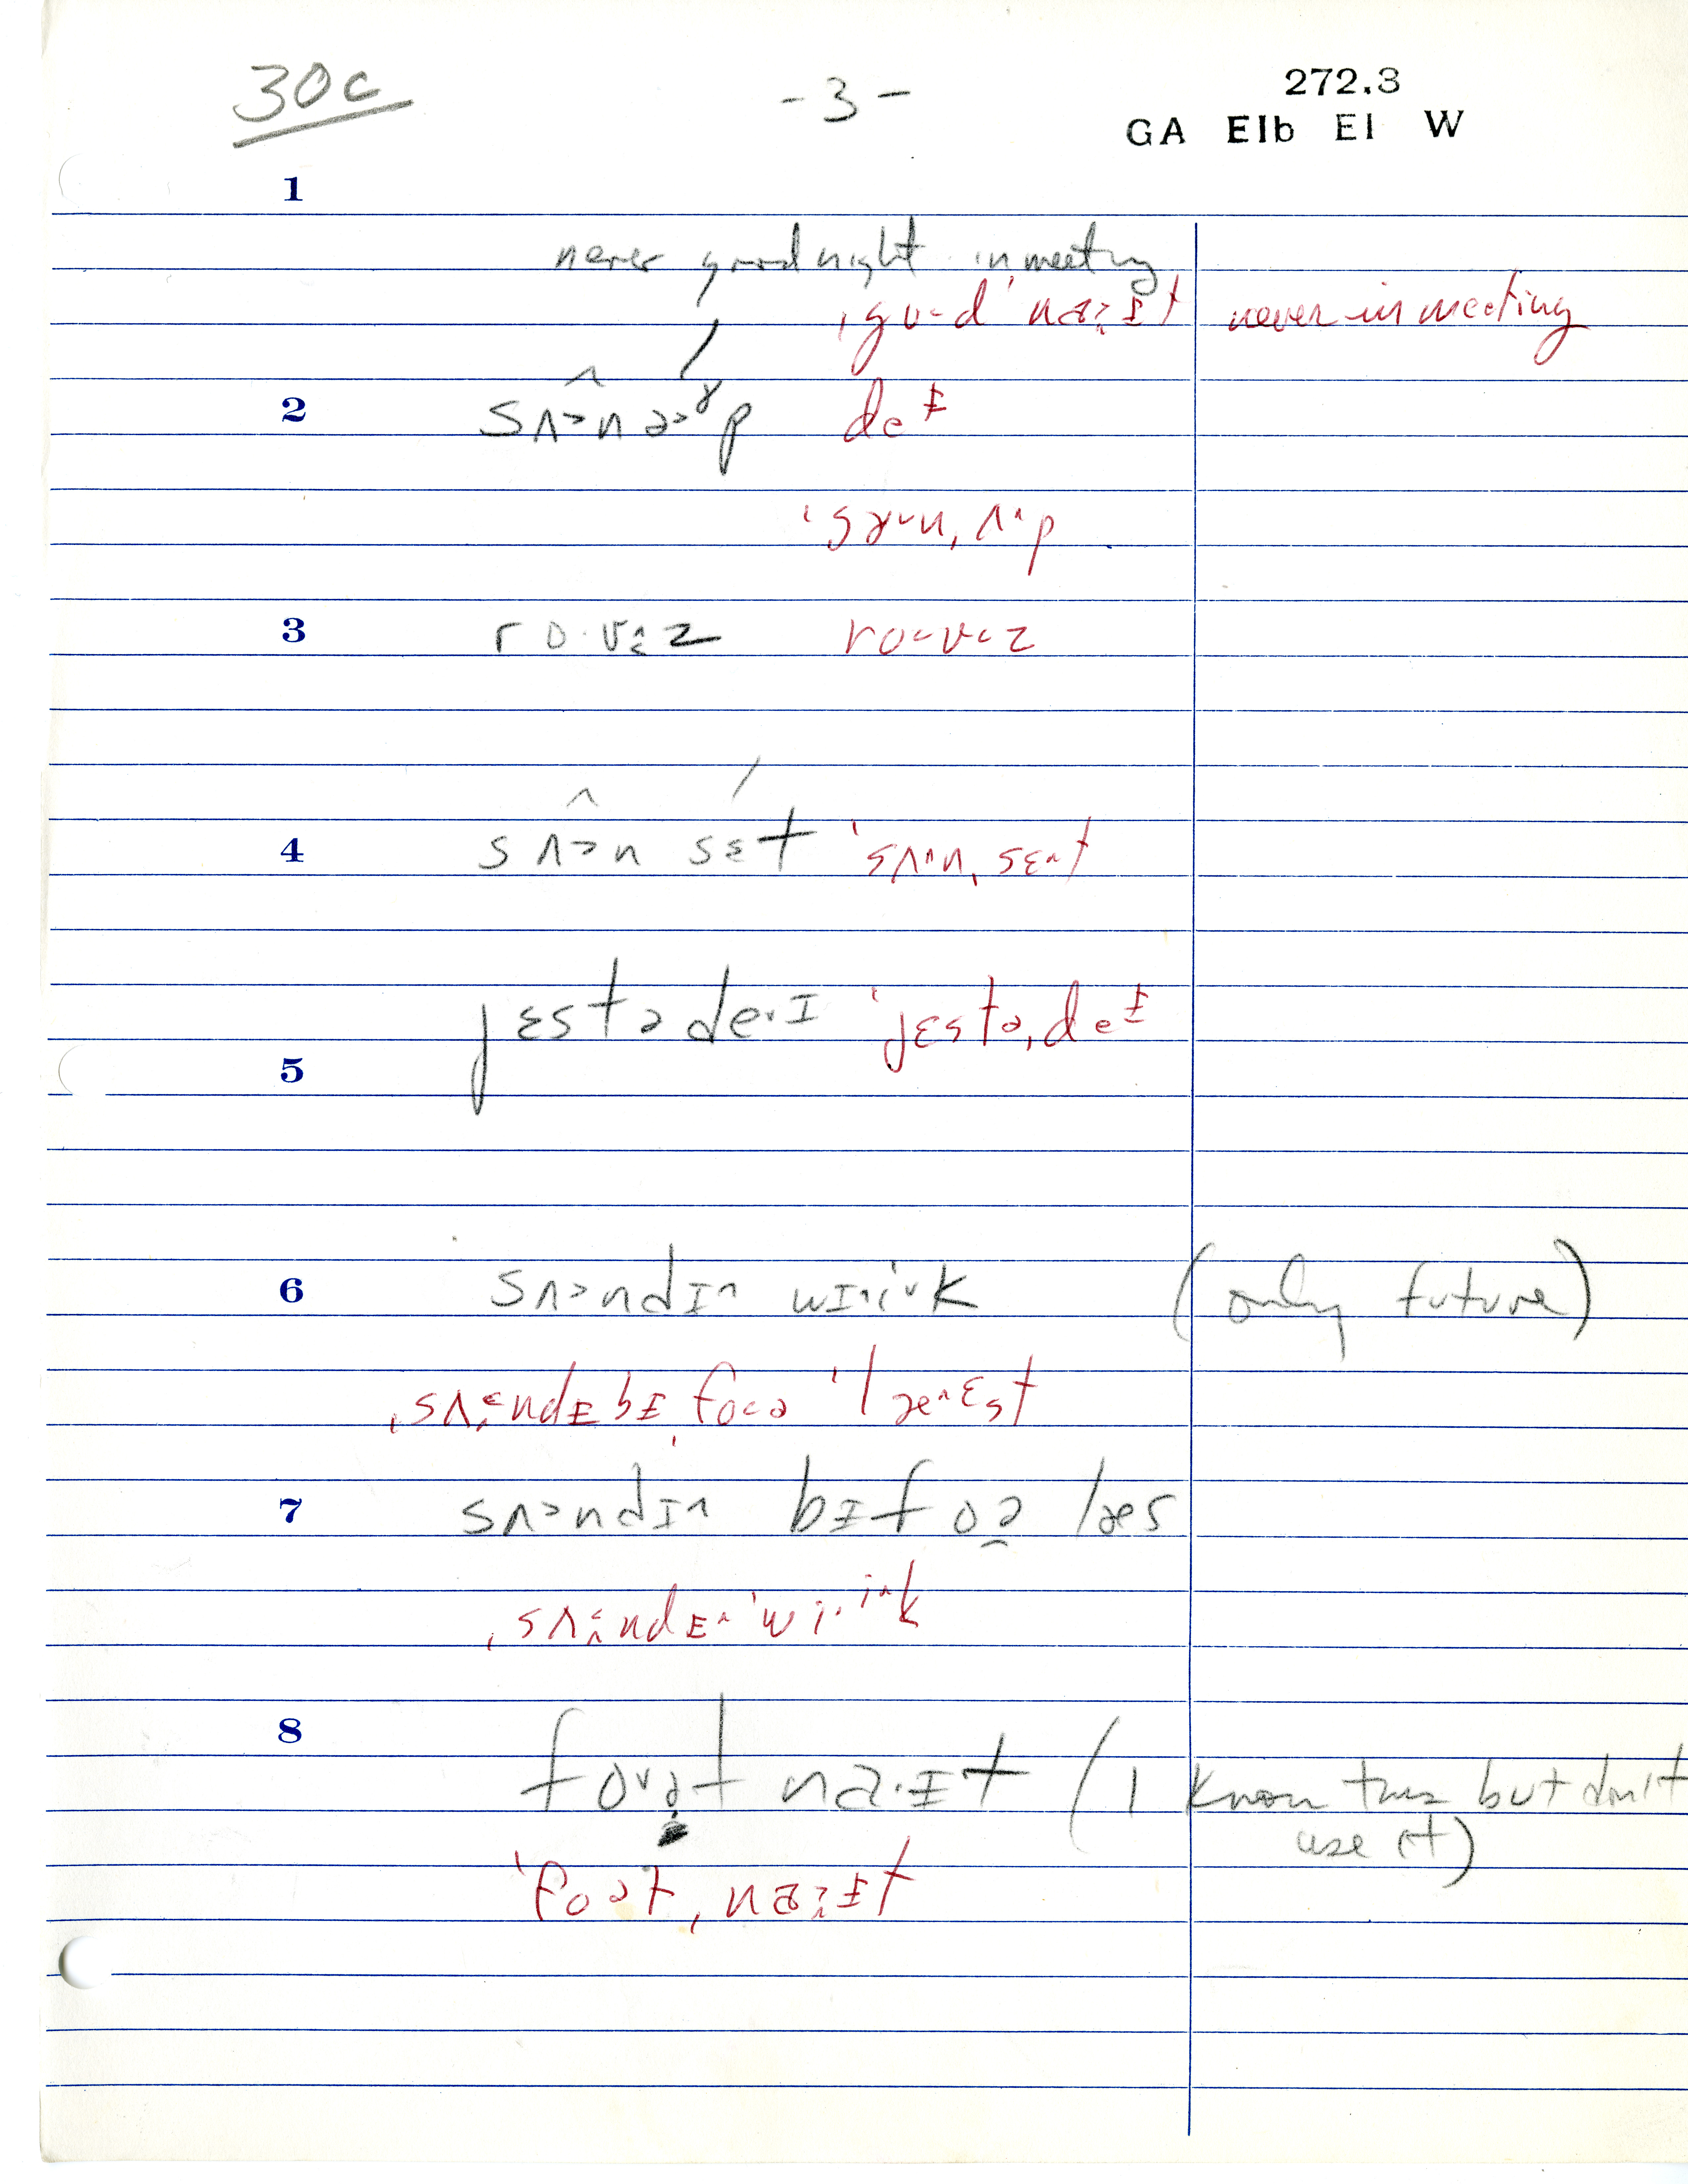 30c -3- 272.3
GA Elb El W
1
never good night in meeting
ˌgʊ˗d ˈnaːɪt never in meeting
2 sʌ˃nəˠp deɪ
ˈsɤ˞n, ʌ˄p
3 ro·vəz ro˂v˂z
4 sʌ˃n sɛt ˈsʌ˄nˌsɛ˄t
jɛstəde·ɪ ˈjɛstəˌdeɪ
5
6 sʌ˃ndɪ˄ wɪ˄iˑk (only future)
ˌsʌndɪ bɪˌfoə ˈlæ˄ɛst
7 sʌ˃ndɪ˄ bɪfoə læs
ˌsʌndɪ˄ ˈwiˑik
8 foət naˑɪt (I know this but don't
use it)
ˈfoətˌnaːɪt